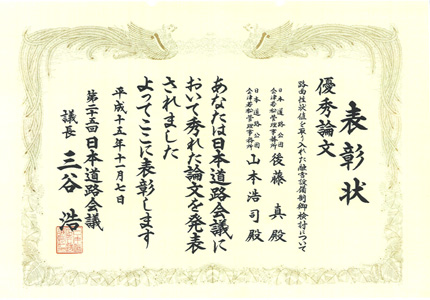 表彰状
優秀論文
路面性状値を取り入れた融雪設備制御検討について
日本道路公団
会津若松管理事務所
後藤 真殿
日本道路公団
会津若松管理事務所
山本浩司殿
あなたは日本道路会議に
おいて秀れた論文を発表
されました
よってここに表彰します
平成十五年十一月七日
第二十五回日本道路会議
議長 三谷 浩